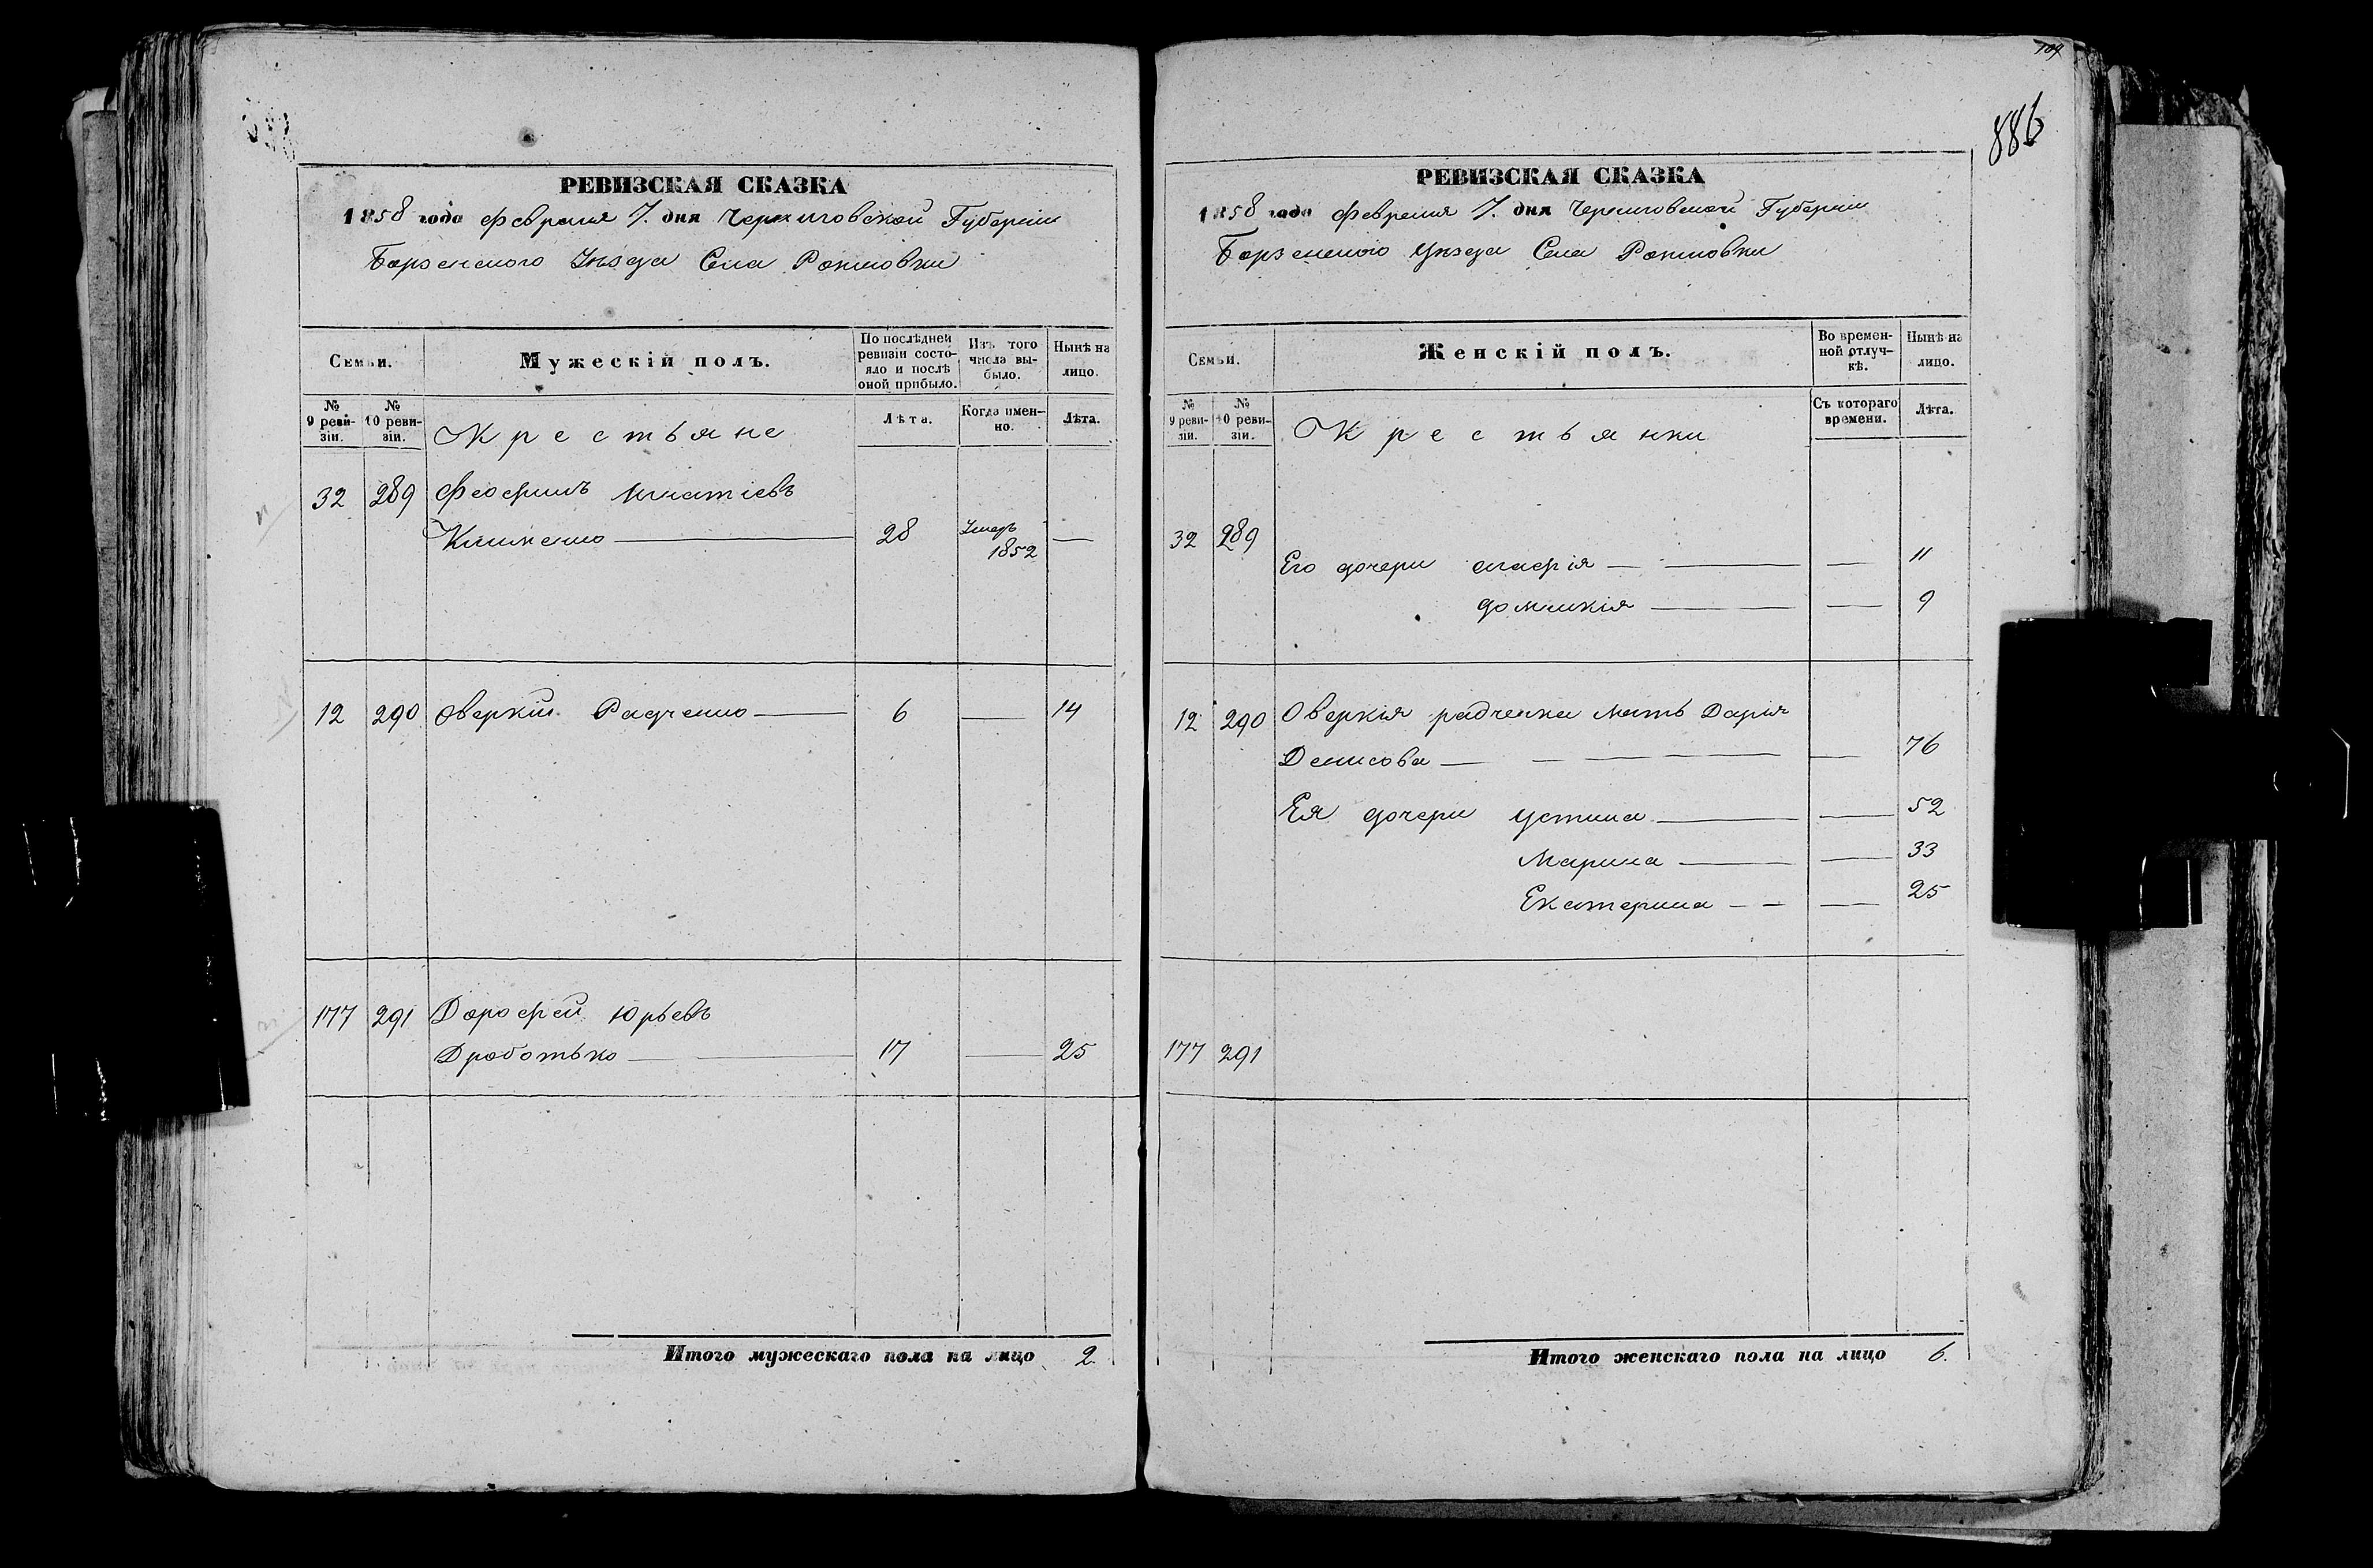 РЕВИЗСКАЯ СКАЗКА
1858 года февраля 7. дня Черниговской Губерніи
Борзенского Уѣзда Села
Семьи.
Мужескій полъ.
По послѣдней ревизіи состояло и послѣ оной прибыло.
Изъ того числа выбыло.
Нынѣ на лицо.
№ 9 ревизіи.
№ 10 ревизіи.
Крестьяне
Лѣта.
Когда именно.
Лѣта.
32 289 Феофилъ Игнатіевъ
Клименко 28 Умеръ 1852
12 290 Оверкій Радченко 6 14
177 291 Дорофей Юрьевъ
Дроботько 17 25
Итого мужескаго пола на лицо 2.
109
886
РЕВИЗСКАЯ СКАЗКА
1858 года февраля 7. дня Черниговской Губерніи
Борзенского Уѣзда Села
Семьи.
Женскій полъ.
Во временной отлучкѣ.
Нынѣ на лицо.
№ 9 ревизіи.
№ 10 ревизіи.
Крестьянки
Съ котораго времени.
Лѣта.
32 289
Его дочери 11
Домникія 9
12 290 Оверкія радченка мать Дарія
Денисова 76
Ея дочери Устина 52
Марина 33
Екатерина 25
177 291
Итого женскаго пола на лицо 6.